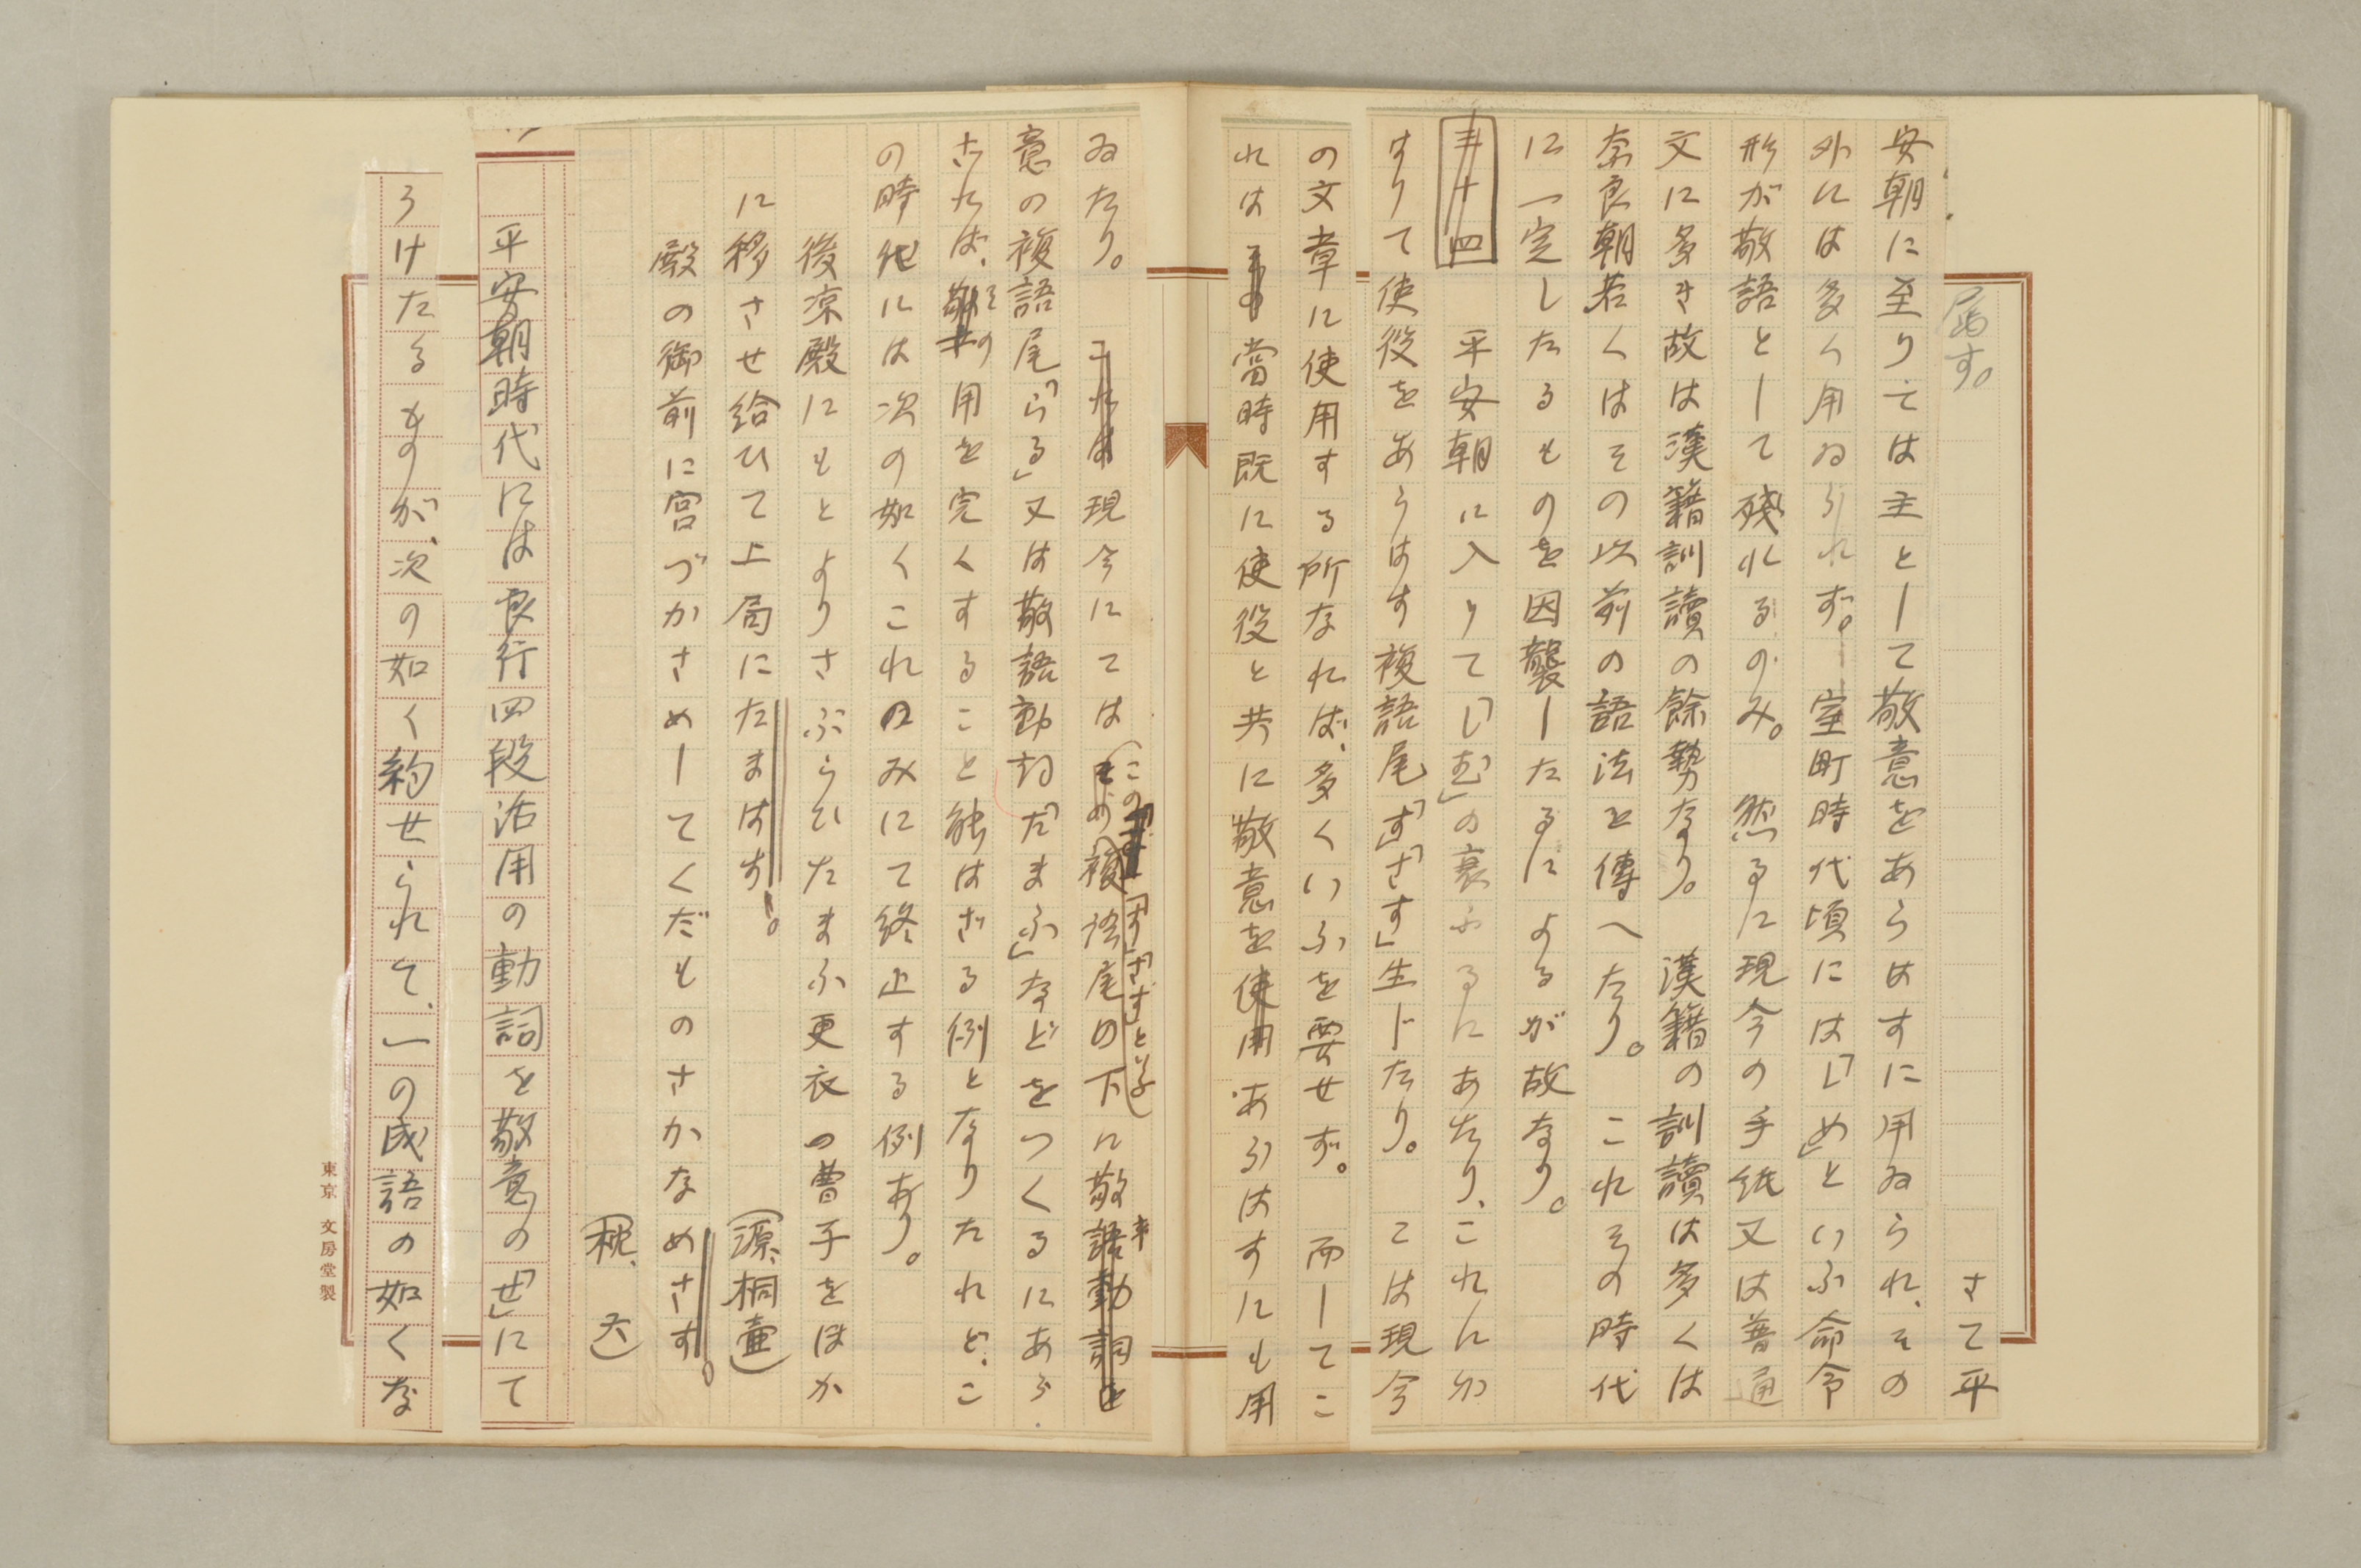 屬す。
さて平
安朝に至りては主として敬意をあらはすに用ゐられ、その
外には多く用ゐられず。室町時代頃には「しめ」といふ命令
形が敬語として殘れるのみ。然るに現今の手紙又は普通
文に多き故は漢籍訓讀の餘勢なり。漢籍の訓讀は多くは
奈良朝若くはその以前の語法を傳へたり。これその時代
に一定したるものを因襲したるによるが故なり。
三十四　平安朝に入りて「しむ」の衰ふるにあたり、これにか
はりて使役をあらはす複語尾「す」「さす」生じたり。こは現今
の文章に使用する所なれば、多くいふを要せず。而してこ
れは當時既に使役と共に敬意をあらはすにも用
ゐたり。現今にてはこの「す」「さす」といふ複語尾の下に敬
意の複語尾「らる」又は敬語動詞「たまふ」などをつくるにあら
ざれば、その用を完くすること能はざる例となりたれど、こ
の時代には次の如くこれのみにて終止する例あり。
後凉殿にもとよりさぶらひたまふ更衣の曹子をほか
に移させ給ひて上局にたまはす。（源、桐壺）
殿の御前に宮づかさめしてくだものさかなめさす。
（枕、六）
平安朝時代には良行四段活用の動詞を敬意の「せ」にて
うけたるものが、次の如く約せられて、一の成語の如くな
東京 文房堂製